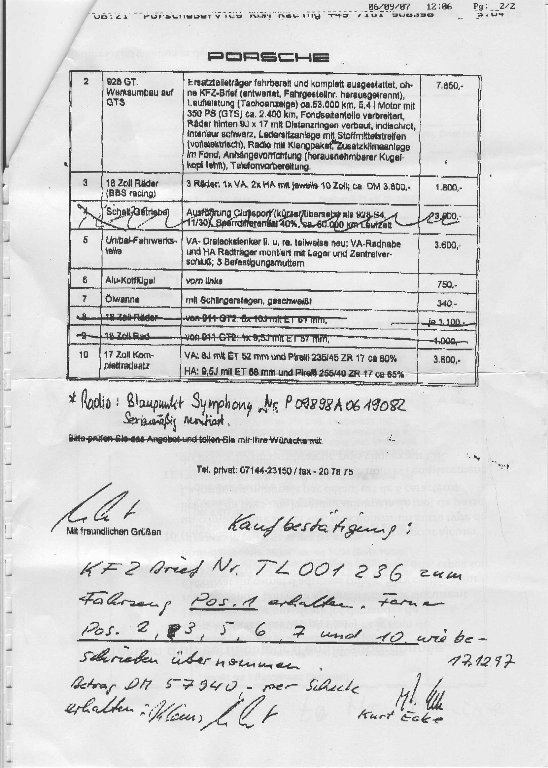 06/09/07 12:06 Pg: 2/2
PORSCHE
2 928 GT. Ersatzteileträger fahrbereit und komplett ausgestattet, oh- 7.850,-
Werksumbau auf ne KFZ-Brief (entwertet, Fahrgestellnr. herausgetrennt),
GTS Laufleistung (Tachoanzeige) ca.53.000 km, 5,4 l Motor mit
350 PS (GTS) ca. 2.400 km, Fondseitenteile verbreitert,
Räder hinten 9J x 17 mit Distanzringen verbaut, indischrot,
Interieur schwarz, Ledersitzanlage mit Stoffmittelstreifen
(vollelektrisch), Radio mit Klangpaket,* Zusatzklimaanlage
im Fond, Anhängevorrichtung (herausnehmbarer Kugel-
kopf fehlt), Telefonvorbereitung.
3 18 Zoll Räder 3 Räder: 1x VA, 2x HA mit jeweils 10 Zoll; ca. DM 3.600,- 1.800,-
(BBS racing)
Schalt-Getriebe Ausführung Clubsport (kürzer übersetzt als 928 S4,
11/30), Sperrdifferential 40%, ca. 60.000 km Laufzeit
5 Unibal-Fahrwerks- VA- Dreieckslenker li. u. re. teilweise neu; VA-Radnabe 3.600,-
teile und HA Radträger montiert mit Lager und Zentralver-
schluß; 3 Befestigungsmuttern
6 Alu-Kotflügel vorn links 750,-
7 Ölwanne mit Schlingerstegen, geschweißt 340,-
8 18 Zoll Räder von 911 GT2: mit ET 61 mm, je 1.100,-
9 18 Zoll Rad von 911 GT2: mit ET 57 mm, 1.000,-
10 17 Zoll Kom- VA: 8J mit ET 52 mm und Pirelli 235/45 ZR 17 ca 60% 3.600,-
plettradsatz
HA: 9,5J mit ET 68 mm und Pirelli 255/40 ZR 17 ca 65%
* Radio: Blaupunkt Symphony Nr. P09898A0619082
Serienmäßig montiert.
Bitte prüfen Sie das Angebot und teilen Sie mir Ihre Wünsche mit.
Tel. privat: 07144-23150 / fax - 20 78 75
Mit freundlichen Grüßen
Kaufbestätigung:
KFZ Brief Nr. TL001236 zum
Fahrzeug Pos. 1 erhalten. Ferner
Pos. 2, 3, 5, 6, 7 und 10 wie be-
schrieben übernommen.
17.12.97
Betrag DM 57940,- per Scheck
erhalten: Klaus
Kurt Ecke